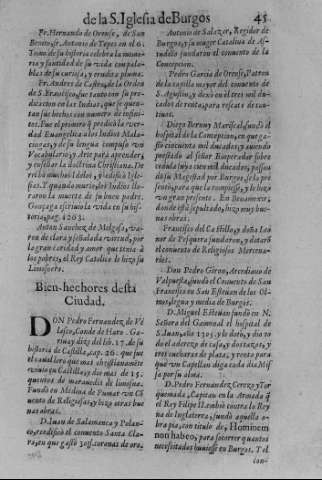 de la S. Iglesia de Burgos 45
Fr. Hernando de Orense, de San
Benito, fr. Antonio de Yepes en el 6.
Tomo de su historia celebra la memo-
ria y santidad de su vida con pala-
bras de su cortesia, y erudita pluma.
Fr. Andres de Castro, de la Orden
de S. Francisco,
dicacion en las Indias, que se quen-
tan sus hechos con nombre de infini-
tos. Fue el primero q̃ predicò la ver-
dad Euangelica a los Indios Mala-
cingas, y de su lengua compuso vn
Vocabulario, y Arte para aprender,
y enseñar la doctrina Christiana. De
ribò muchos Idolos, y edificò Igle-
sias. Y quando murio, los Indios llo-
raron la muerte de su buen padre.
Gonçaga escriuio la vida en su his-
toria, pag. 1203.
Anton Sanchez de Melgosa, va-
ron de clara y señalada virtud, por
la gran caridad y amor que tenia à
los pobres, el Rey Catolico le hizo su
Limosnero.
Bien-hechores desta
Ciudad.
DON Pedro Fernandez de Ve
lasco, Conde de Haro. Ga-
riuay dize del lib. 17. de su
historia de Castilla, cap. 26. que fue
el cauallero que mas christianamẽte
viuio en Castilla, diò mas de 15.
quentos de marauedis de limosna.
Fundò en Medina de Pumar vn Cõ
uento de Religiosas, y hizo otras bue
nas obras.
D. Iuan de Salamanca y Polan-
co, reedificò el conuento Santa Cla-
ra, en que gastò 30j. coronas de oro.
Antonio de Salazar, Regidor de
Burgos, y su muger Catalina de As-
tudillo fundaron el conuento de la
Concepcion.
Pedro Garcia de Orense, Patron
de la capilla mayor del conuento de
S. Agustin, y dexò en el tres mil du-
cados de renta, para rescate de cau-
tiuos.
Diego Bernuy Mariscal, fundò el
hospital de la Concepcion, en que ga-
stò cinquenta mil ducados, y auiendo
prestado al señor Emperador sobre
cedula suya cien mil ducados, passan
do su Magestad por Burgos se la pre
sentò, para que la rompiesse, y le hizo
vn gran presente. En Benamexir,
donde està sepultado, hizo muy bue-
nas obras.
Francisco del Castillo, y doña Leo
nor de Pesquera fundaron, y dotarõ
el conuento de Religiosos Mercena-
rios.
Don Pedro Giron, Arcediano de
Valpuesta, fundò el Conuento de San
Francisco en San Esteuan de los Ol-
mos, legua y media de Burgos.
D. Miguel Esteuan fundò en N.
Señora del Gamonal el hospital de
S. Iuan, año 1305. y le dotò, y dio to
do el aderezo de caja, y dostazas, y
tres cucharas de plata, y renta para
que vn Capellan diga cada dia Mis
sa por su alma.
D. Pedro Fernandez Cerezo y Tor
quemada, Capitan en la Armada q̃
el Rey Filipe II. embiò contra la Rey
na de Inglaterra, fundò aquella o-
bra pia, con titulo de, Hominem
non habeo, para socorrer quantos
necessitados huuiesse en Burgos. Tel
con-